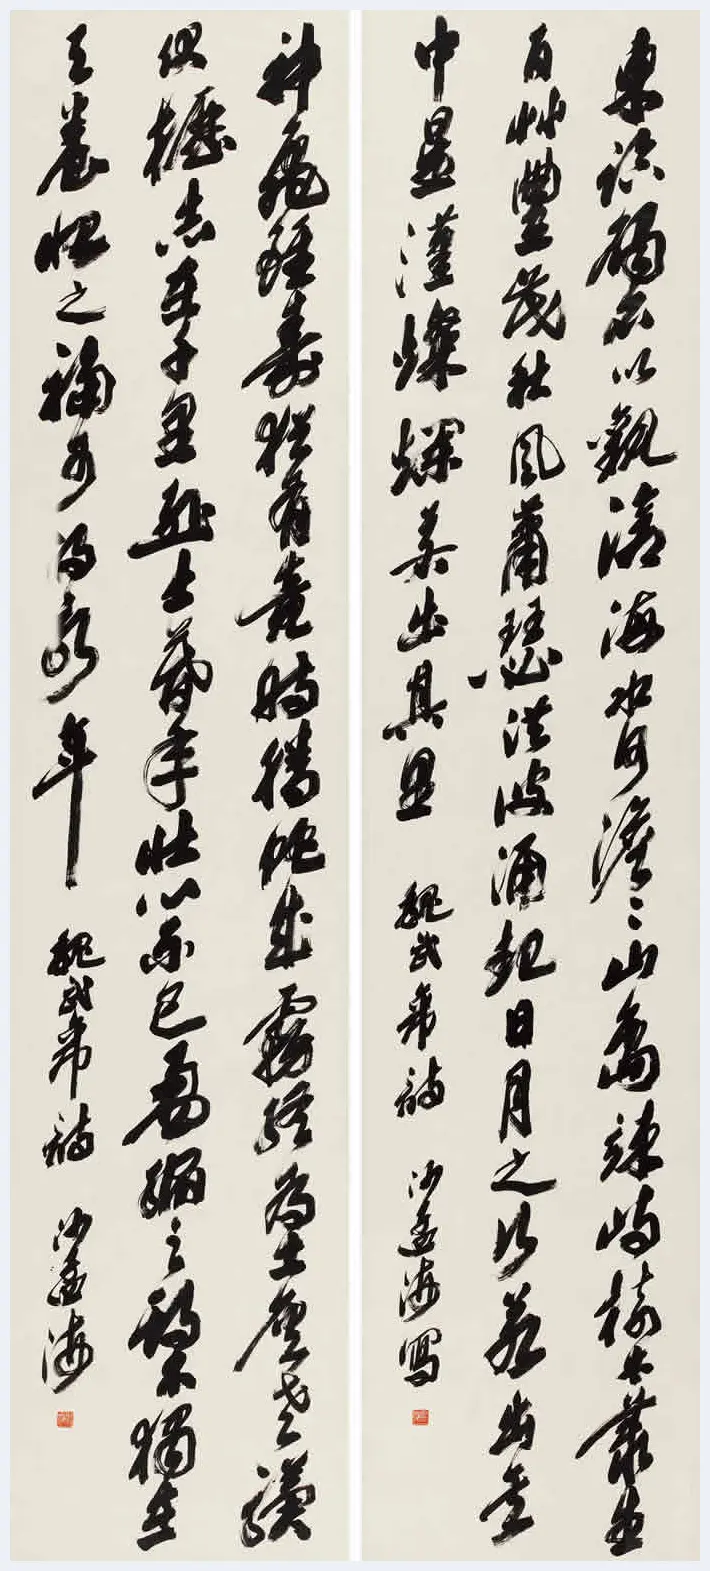 東臨碣石以觀滄海水何澹〻山島竦峙樹木叢生
百艸豐茂秋風蕭瑟洪波涌起日月之行若出其
中星漢燦爛若出其里 魏武帝詩 沙孟海寫
神龜雖壽猶有竟時騰蛇成霧終為土灰老驥
伏櫪志在千里烈士暮年壯心不已盈縮之期不獨在
天養怡之福可得永年 魏武帝詩 沙孟海